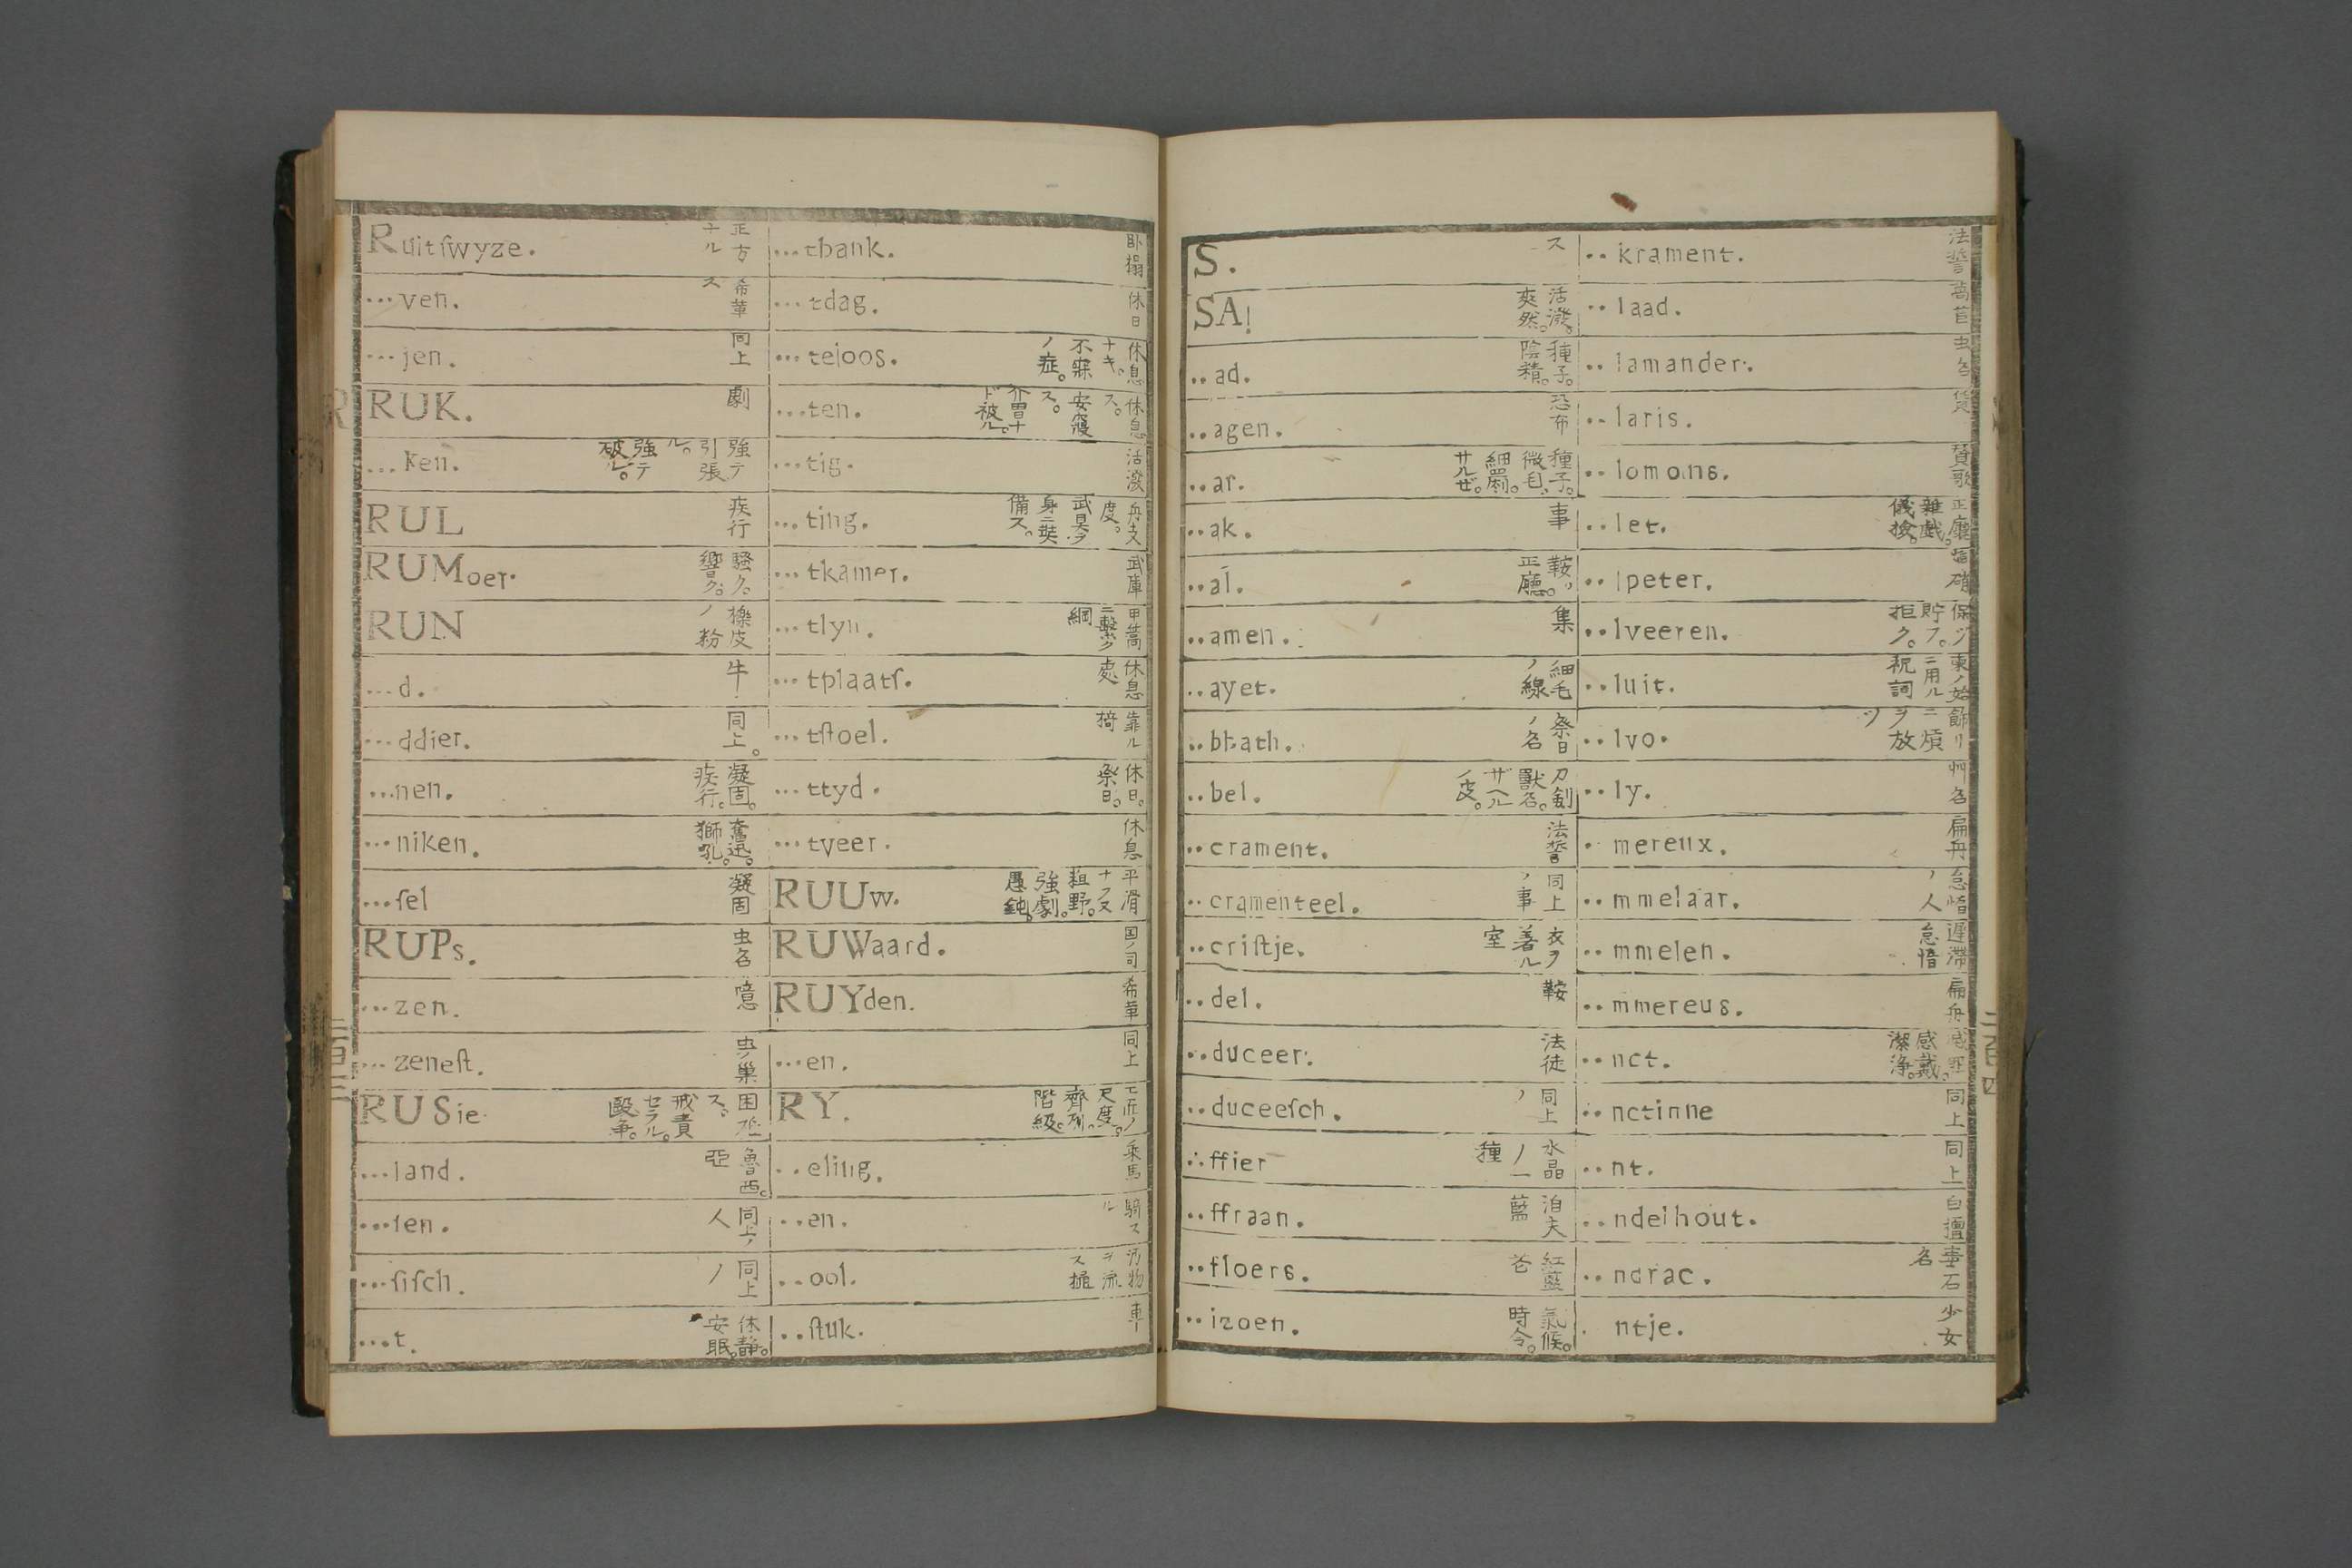 Ruitſwyze. 正方ナル
...ven. 希革ス
...jen. 同上
RUK. 劇
...ken. 強テ引張ル。強テ破ル。
RUL 疾行
RUMoer. 騒ク。響ク。
RUN 檪皮ノ粉
...d. 牛
...ddier. 同上。
...nen. 凝固。疾行。
...niken. 奮迅。獅吼。
...ſel 凝固
RUPs. 虫名
...zen. 噫
...zeneſt. 虫ノ巣
RUSie. ス。戒責セラル。
...land. 魯西。亞
...ſen. 同上ノ人
...ſiſch. 同上ノ
...t. 休静。安眠。
...tbank. 卧榻
...tdag. 休日
...teloos. 休息ナキ。不寐ノ症。
...ten. 休息ス。安寝ス。介冑ナド被ル。
...tig. 活溌
...ting. 度。身ニ裝備ス。
...tkamer. 武庫
...tlyn. ニ繋ク綱
...tplaatſ. 休息処
...tſtoel. 靠ル椅
...ttyd. 休日。祭日。
...tveer. 休息
RUUw. 平滑ナラヌ。粗野。強劇。愚鈍。
RUWaard. 国ノ司
RUYden. 希革
...en. 同上
RY. 尺度。齊列。階級。
..eling. 乗馬
..en. 騎スル
..ool. 汚物ヲ流ス樋
..ſtuk. 車
R
S. ス
SA! 活潑。爽然。
..ad. 種子。陰精。
..agen. 恐布
..ar. 種子。微毛。細罽。サルゼ。
..ak. 事
..al. 鞍。正廳。
..amen. 集
..ayet. 細毛ノ線
..bbath. 祭日ノ名
..bel. 刀劍獸名。サヘルノ皮。
..crament. 法誓
..cramenteel. 同上ノ事
..criſtje. 衣ヲ着ル室
..del. 鞍
..duceer. 法徒
..duceeſch. 同上ノ
..ffier 水晶ノ一種
..ffraan. 泊夫藍
..floers. 紅藍
..izoen. 氣候。時令。
..krament. 法誓
..laad. 萵苣
..lamander. 虫名
..laris. 貨
..lomons. 賛歌
..let. 正廳 雜戯。
..lpeter. 硝
..lveeren. 保ツ 貯フ。拒ク。
..luit. ニ用ル祝詞
..lvo. 飾リニ煩ヲ放ツ
..ly. 艸名
. mereux. 扁舟
..mmelaar. 怠惰ノ人
..mmelen. 遅滞 怠惰
..mmereus. 扁舟
..nct. 感戴。潔浄。
..nctinne 同上
..nt. 同上
..ndelhout. 白檀
..ndrac. 石名
. ntje. 少女